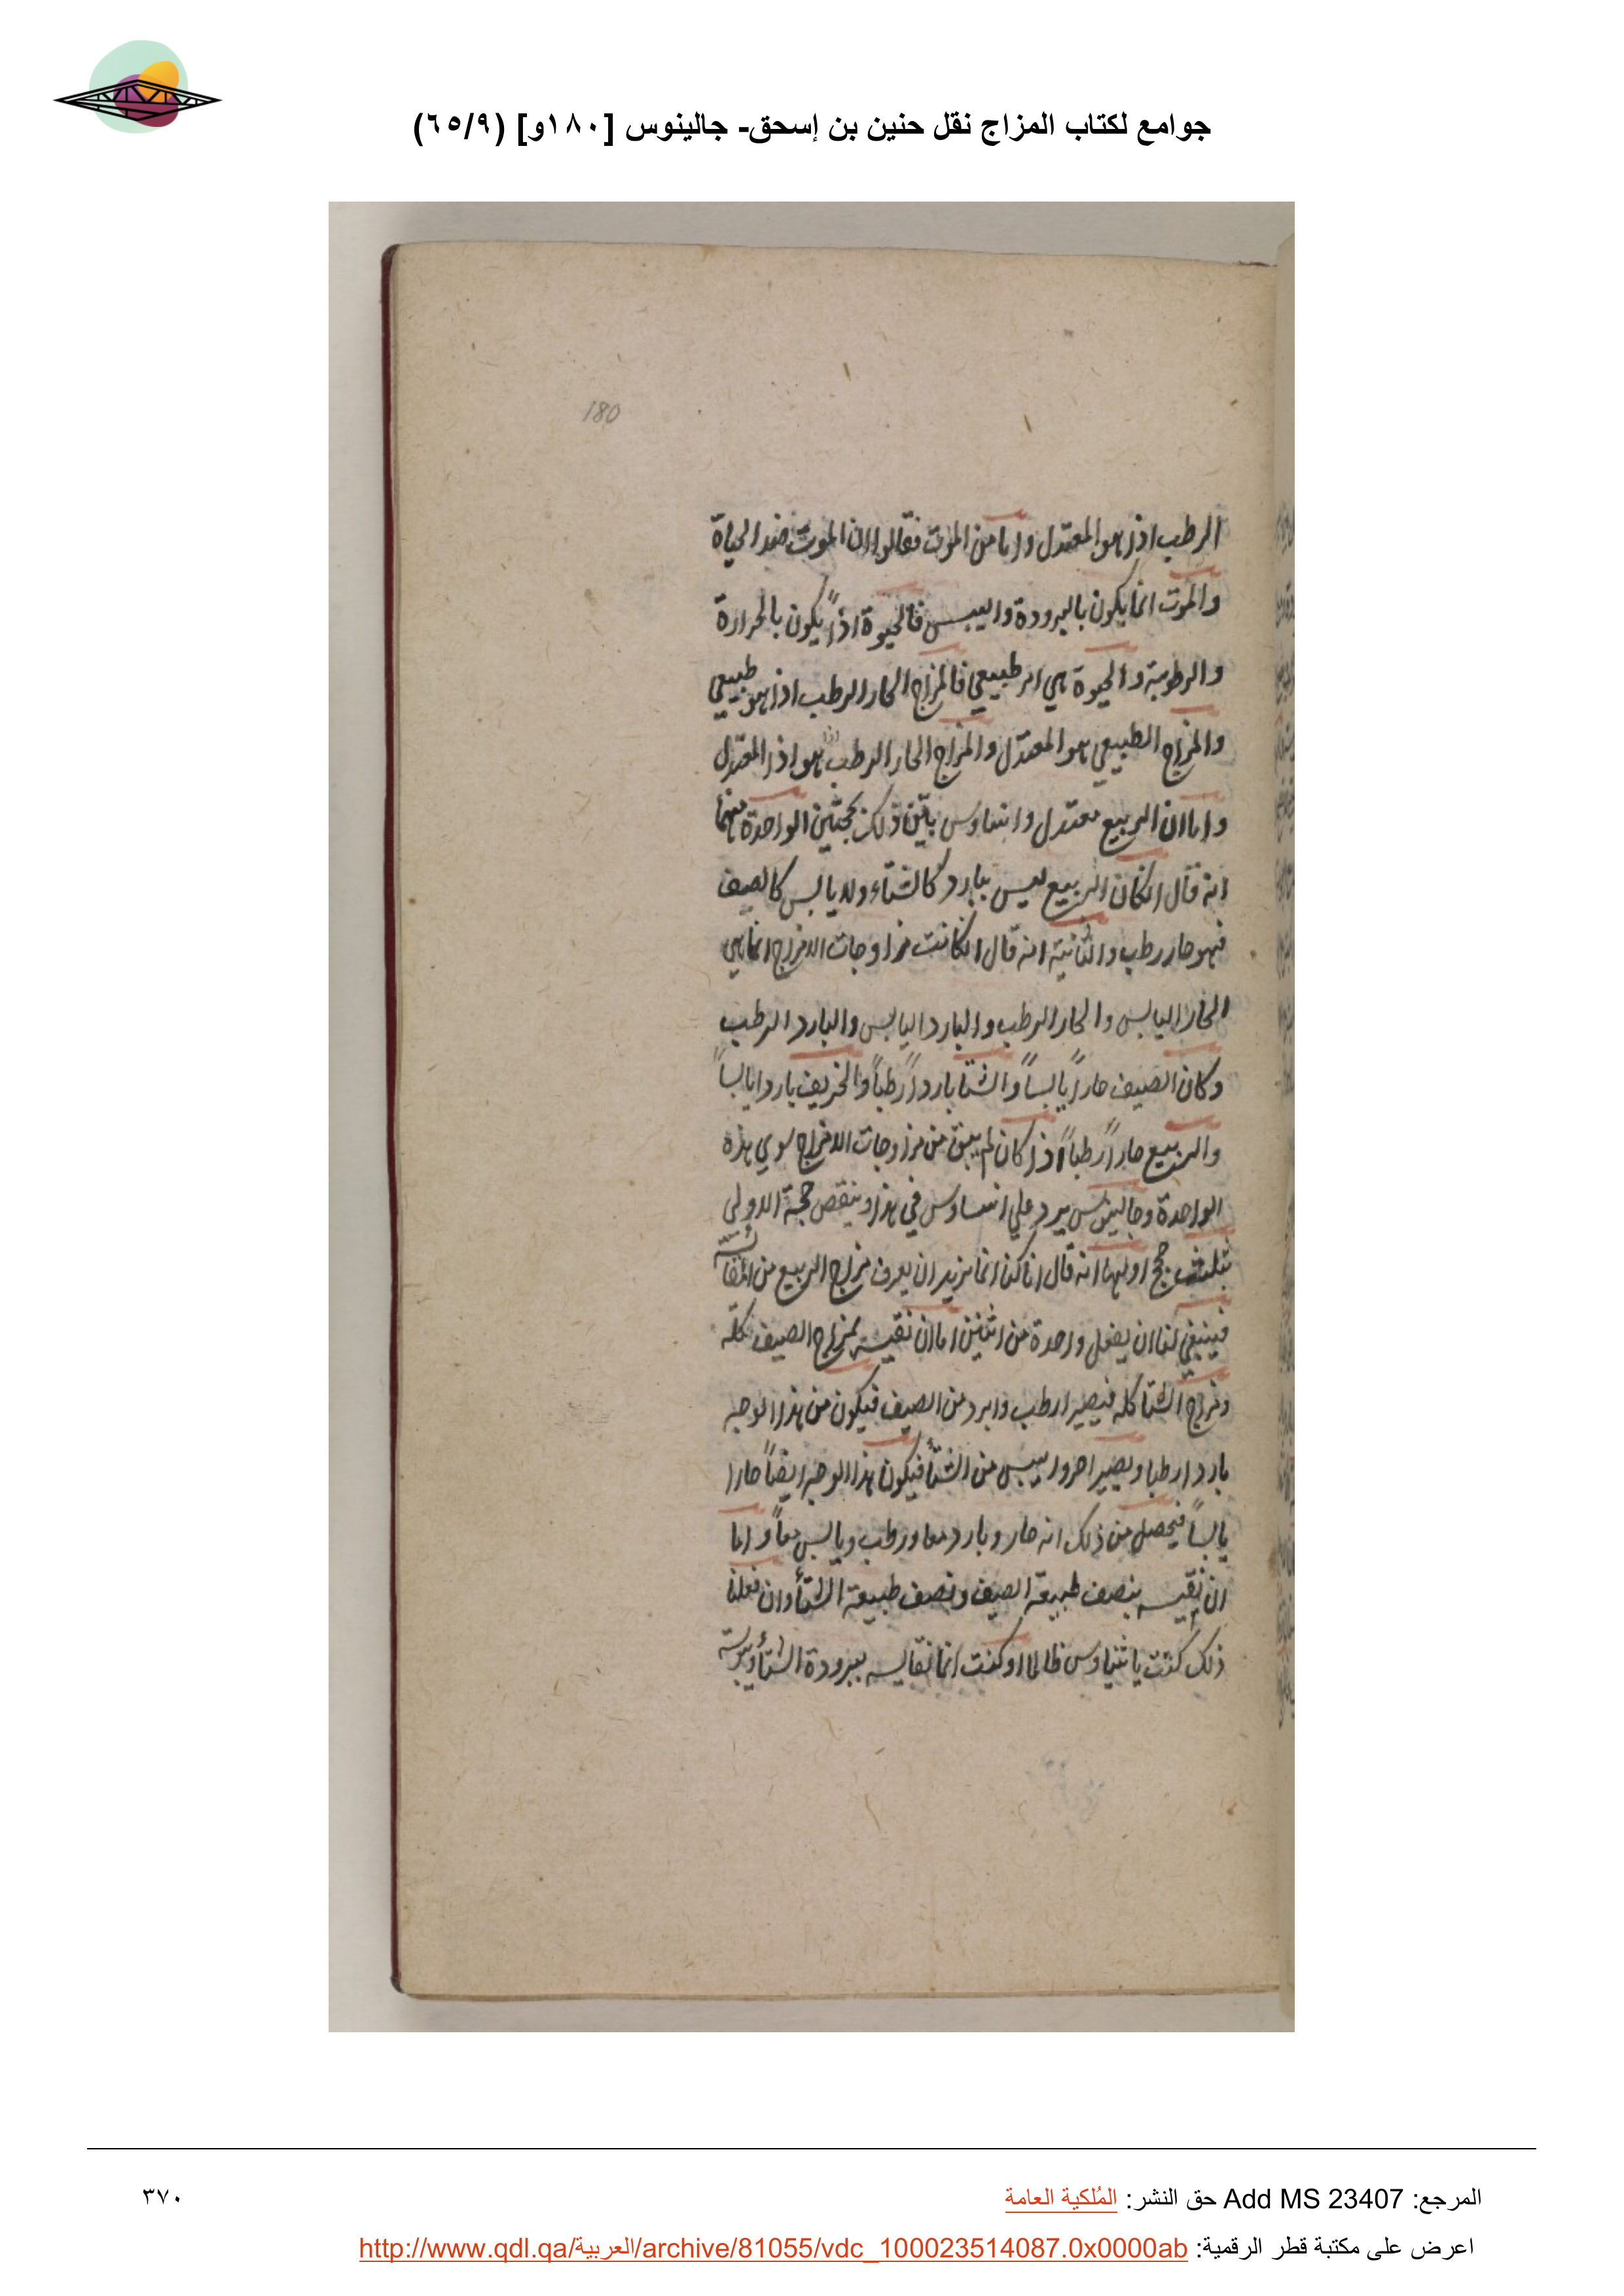 جوامع لكتاب المزاج نقل حنين بن إسحق- جالينوس [١٨٠و] (٦٥/٩)
180
الرطب اذا هو المعتدل واما من الموت فقالوا ان الموت ضد الحياة
والموت انما يكون بالبرودة واليبس فالحيوة اذاً يكون بالحرارة
والرطوبة والحيوة هي امر طبيعي فالمزاج الحار الرطب اذا هو طبيعي
والمزاج الطبيعي هو المعتدل والمزاج الحار الرطب هو اذا المعتدل
واما ان الربيع معتدل واثيناوس بيّن ذلك بحجتين الواحدة منهما
انه قال ان كان الربيع ليس ببارد كالشتاء ولا يابس كالصيف
فهو حار رطب والثانية انه قال ان كانت مزاوجات الامزاج انما هي
الحار اليابس والحار الرطب والبارد اليابس والبارد الرطب
وكان الصيف حاراً يابساً والشتا بارداً رطباً والخريف باردا يابساً
والربيع حاراً رطباً اذا كان لم يبق من مزاوجات الامزاج سوي هذه
الواحدة وجالينوس يرد علي اثيناوس في هذا وينقص حجة الاولى
بثلث حجج اولها انه قال انا كنا انما نريد ان يعرف مزاج الربيع من المقايسة
فينبغي لنا ان يفعل واحدة من اثنين اما ان نقيسه بمزاج الصيف كله
ومزاج الشتا كله فيصير ارطب وابرد من الصيف فيكون من هذا الوجه
باردا رطبا ويصير احر وايبس من الشتأ فيكون هذا الوجه ايضاً حارا
يابساً فيحصل من ذلك انه حار وبارد معا ورطب ويابس معاً واما
ان نقيسه بنصف طبيعة الصيف ونصف طبيعة الشتأ وان فعلنا
ذلك كنت يا اثيناوس ظالما او كنت انما تقايسه ببرودة الشتأ
المرجع: Add MS 23407 حق النشر: المُلكية العامة
٣٧٠
اعرض على مكتبة قطر الرقمية: http://www.qdl.qa/العربية/archive/81055/vdc_100023514087.0x0000ab